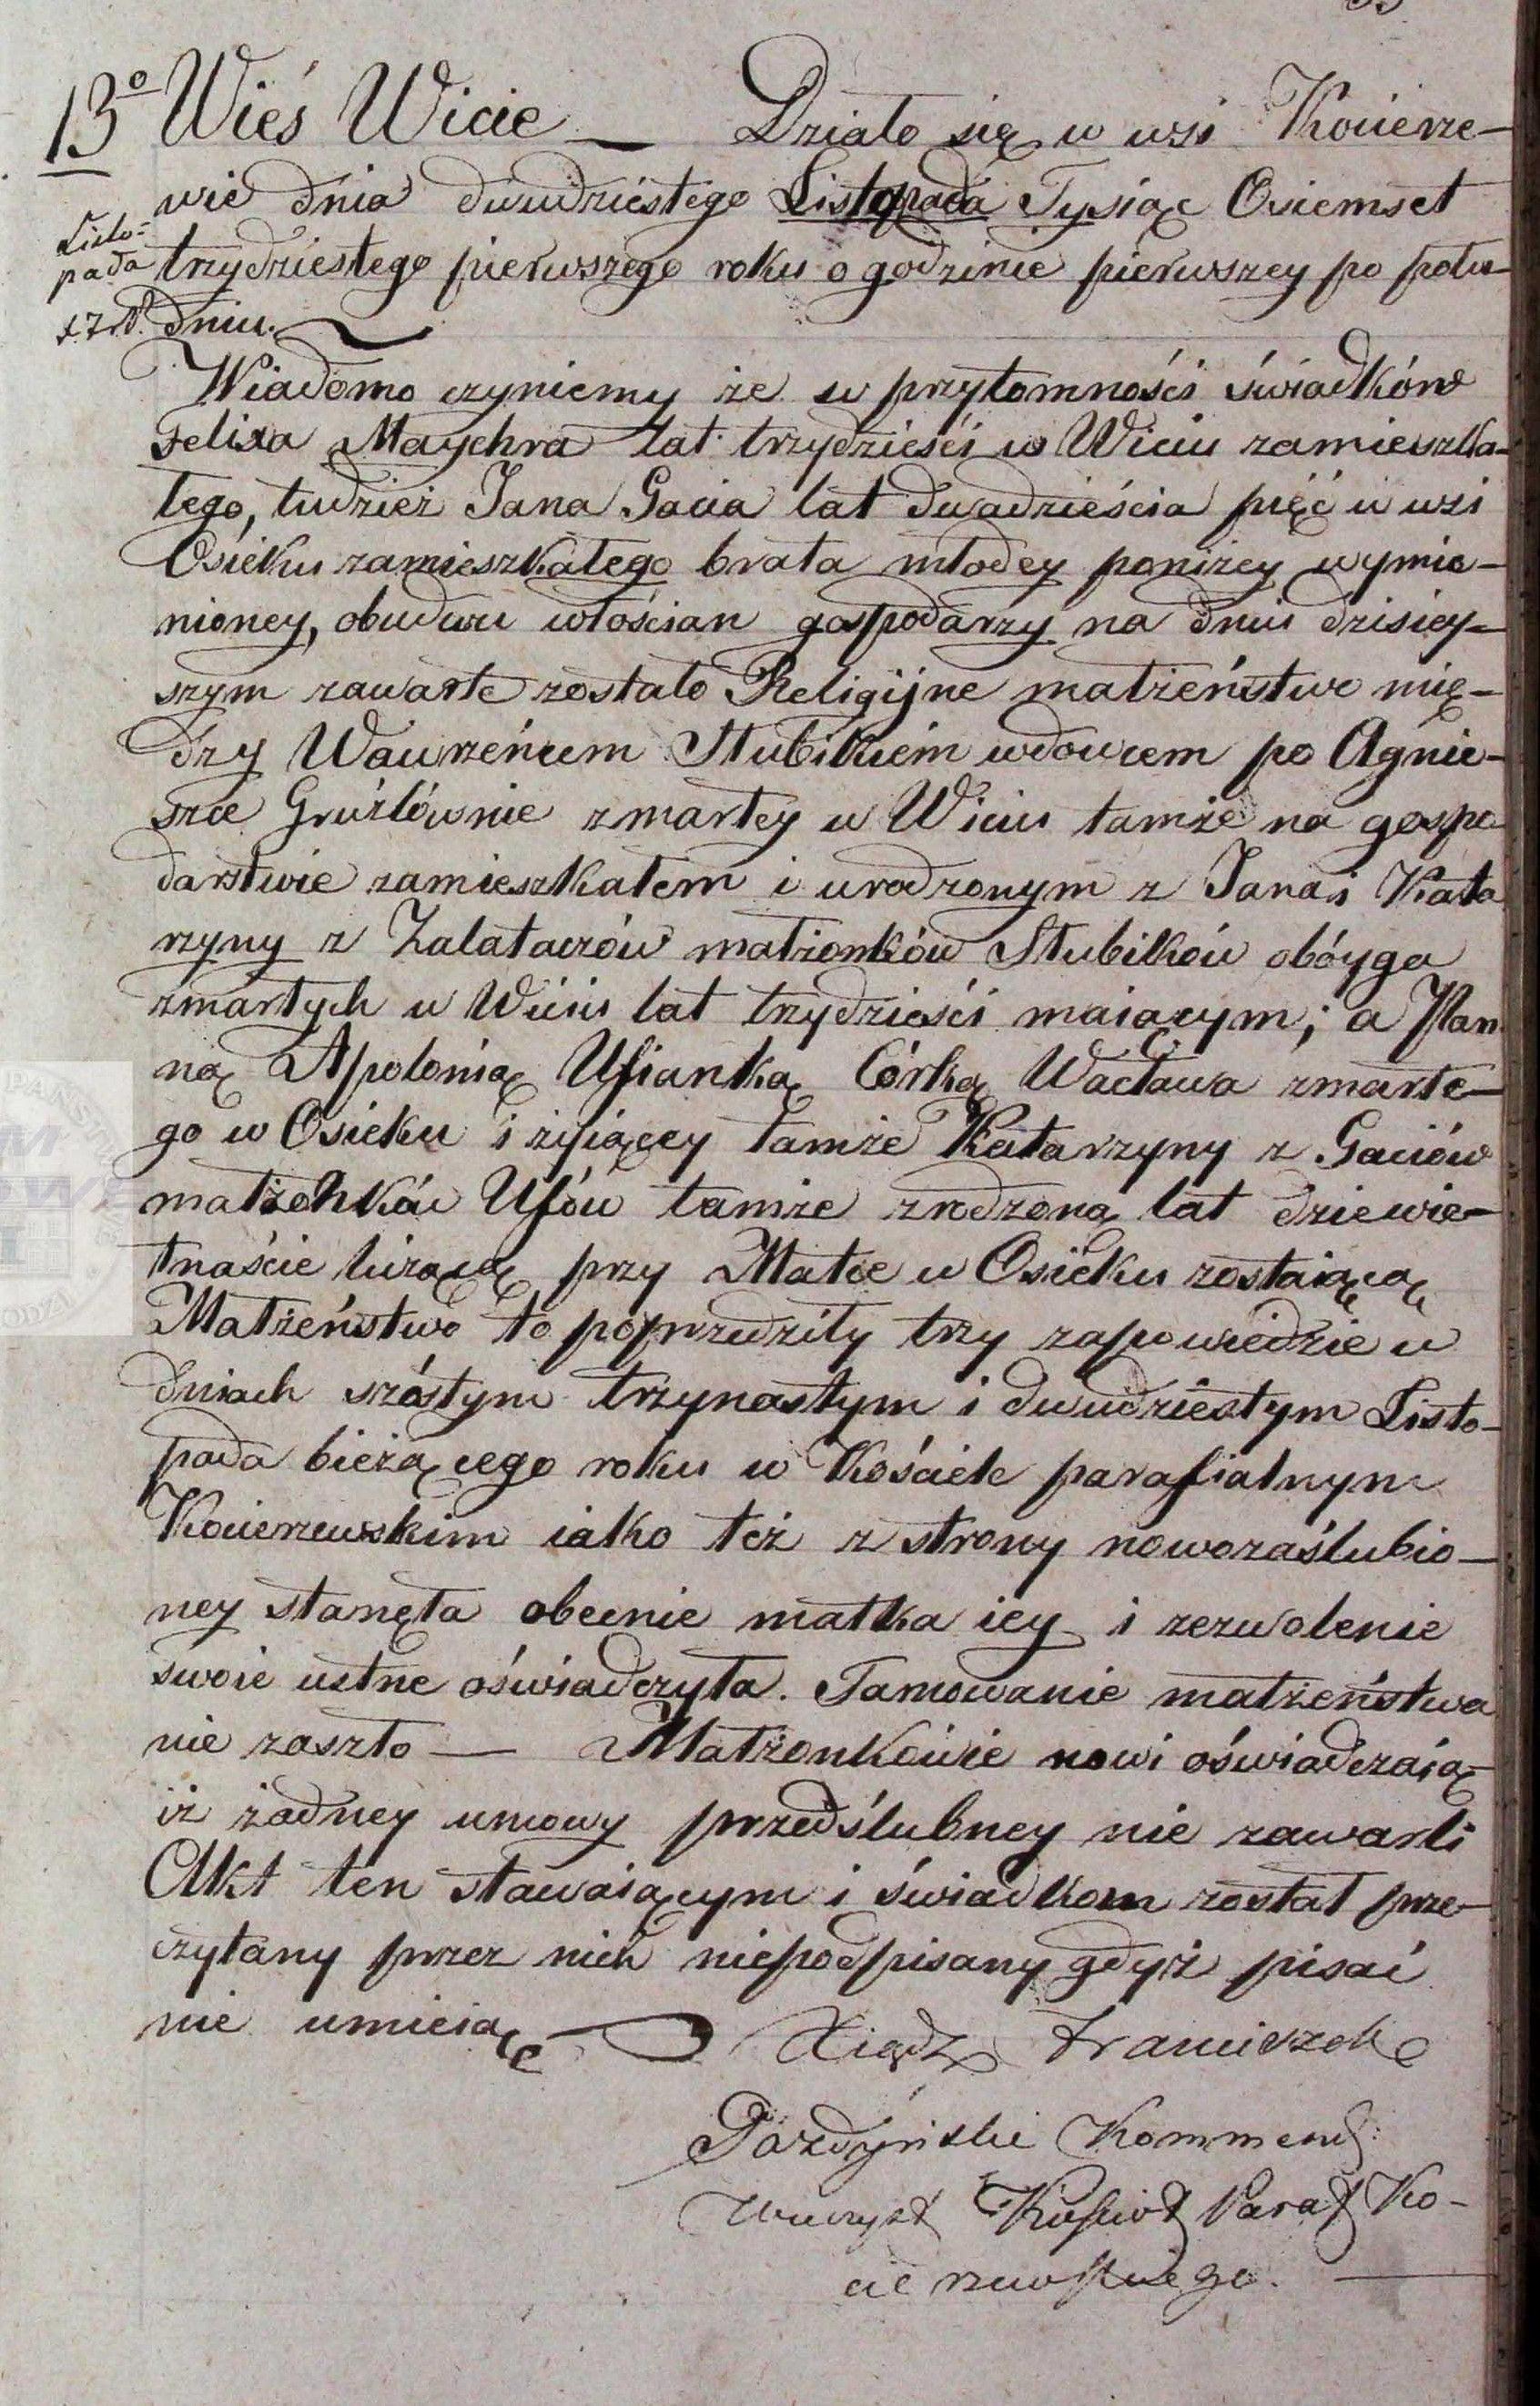 13º Wieś Wicie — Działo się w wsi Kocierze-
wie dnia dwudziestego Listopada Tysiąc Osiemset
Listo=
pada
trzydziestego pierwszego roku o godzinie pierwszey po połu-
dniu.
Wiadomo czyniemy że w przytomności świadków
Felixa Maychra lat trzydzieści w Wiciu zamieszka-
łego, tudzież Jana Gacia lat dwadzieścia pięć w wsi
Osieku zamieszkałego brata młodey poniżey wymie-
nioney, obudwu włościan gospodarzy na dniu dzisiey-
szym zawarte zostało Religijne małżeństwo mię-
dzy Wawrzeńcem Stubikiem wdowcem po Agnie-
szce Gruźlównie zmarłey w Wiciu tamże na gospo
darstwie zamieszkałem i urodzonym z Jana i Kata
rzyny z Zalataczów małżonków Stubików obóyga
zmarłych w Wiciu lat trzydzieści maiącym; a Pan
ną Apolonią Ufianką Córką Wacława zmarłe-
go w Osieku i żyiącey tamże Katarzyny z Gaciów
małżonków Ufów tamże zrodzoną lat dziewie-
tnaście liczącą przy Matce w Osieku zostaiącą
Małżeństwo to poprzedziły trzy zapowiedzie w
dniach szóstym trzynastym i dwudziestym Listo-
pada bieżącego roku w Kościele parafialnym
Kocierzewskim iako też z strony nowozaślubio-
ney stanęła obecnie matka iey i zezwolenie
swoie ustne oświadczyła. Tamowanie małżeństwa
nie zaszło — Małżonkowie nowi oświadczaią
iż żadney umowy przedślubney nie zawarli
Akt ten stawaiącym i świadkom został prze-
czytany przez nich niepodpisany gdyż pisać
nie umieią — Xiądz Franciszek
Pazdyński Kommend.
Kościoł Paraf Ko-
cierzewskiego.